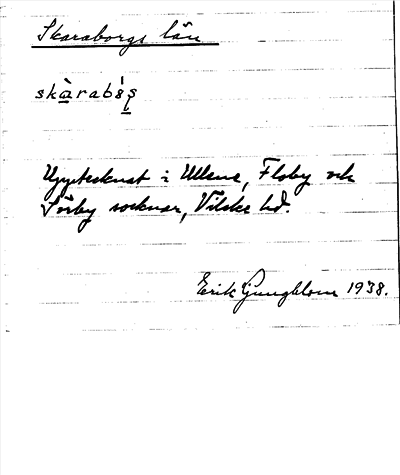 Skaraborgs län
skàrabòs
Upptecknat i Ullene, Floby och
Sörby socknar, Vilske hd.
Erik Ljungblom 1938.